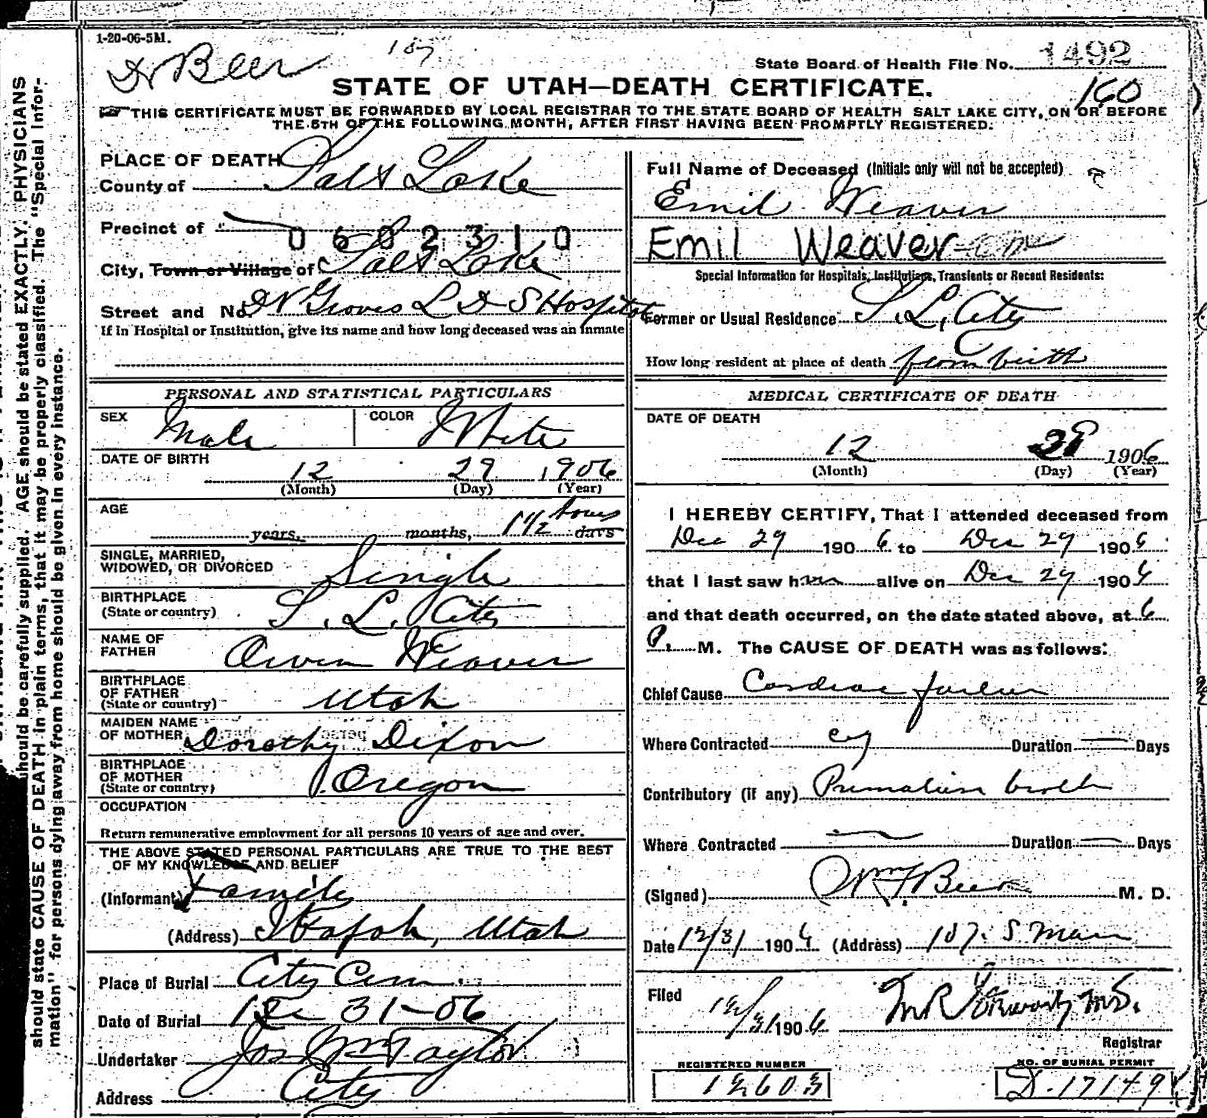 1-20-06-5M.
Dr Beer
187
State Board of Health File No. 1492
160
STATE OF UTAH—DEATH CERTIFICATE.
THIS CERTIFICATE MUST BE FORWARDED BY LOCAL REGISTRAR TO THE STATE BOARD OF HEALTH SALT LAKE CITY, ON OR BEFORE
THE 5TH OF THE FOLLOWING MONTH, AFTER FIRST HAVING BEEN PROMPTLY REGISTERED.
PLACE OF DEATH
County of Salt Lake
Precinct of
0602310
City, Town or Village of Salt Lake
Street and No. Dr Groves L D S Hospital
If in Hospital or Institution, give its name and how long deceased was an inmate
Full Name of Deceased (Initials only will not be accepted)
Emil Weaver
Emil Weaver
Special Information for Hospitals, Institutions, Transients or Recent Residents:
Former or Usual Residence S. L. City
How long resident at place of death from birth
PERSONAL AND STATISTICAL PARTICULARS
SEX Male COLOR White
DATE OF BIRTH
12 29 1906
(Month) (Day) (Year)
AGE
years, months, 1 1/2 hours days
SINGLE, MARRIED,
WIDOWED, OR DIVORCED Single
BIRTHPLACE
(State or country) S. L. City
NAME OF
FATHER Owen Weaver
BIRTHPLACE
OF FATHER
(State or country) Utah
MAIDEN NAME
OF MOTHER Dorothy Dixon
BIRTHPLACE
OF MOTHER
(State or country) Oregon
OCCUPATION
Return remunerative employment for all persons 10 years of age and over.
THE ABOVE STATED PERSONAL PARTICULARS ARE TRUE TO THE BEST
OF MY KNOWLEDGE AND BELIEF
(Informant) Family
(Address) Utah
Place of Burial City Cem.
Date of Burial 12 31-06
Undertaker Jos Wm Taylor
Address City
MEDICAL CERTIFICATE OF DEATH
DATE OF DEATH
12 29 1906
(Month) (Day) (Year)
I HEREBY CERTIFY, That I attended deceased from
Dec 29 1906 to Dec 29 1906
that I last saw him alive on Dec 29 1906
and that death occurred, on the date stated above, at 6
P. M. The CAUSE OF DEATH was as follows:
Chief Cause Cardiac failure
Where Contracted City Duration Days
Contributory (if any) Premature birth
Where Contracted Duration Days
(Signed) Wm F Beer M. D.
Date 12/31 1906 (Address) 187 S Main
Filed
12/31 1906 M.D.
Registrar
REGISTERED NUMBER
12603
NO. OF BURIAL PERMIT
D-17149
should be carefully supplied. AGE should be stated EXACTLY. PHYSICIANS
should state CAUSE OF DEATH in plain terms, that it may be properly classified. The "Special Infor-
mation" for persons dying away from home should be given in every instance.